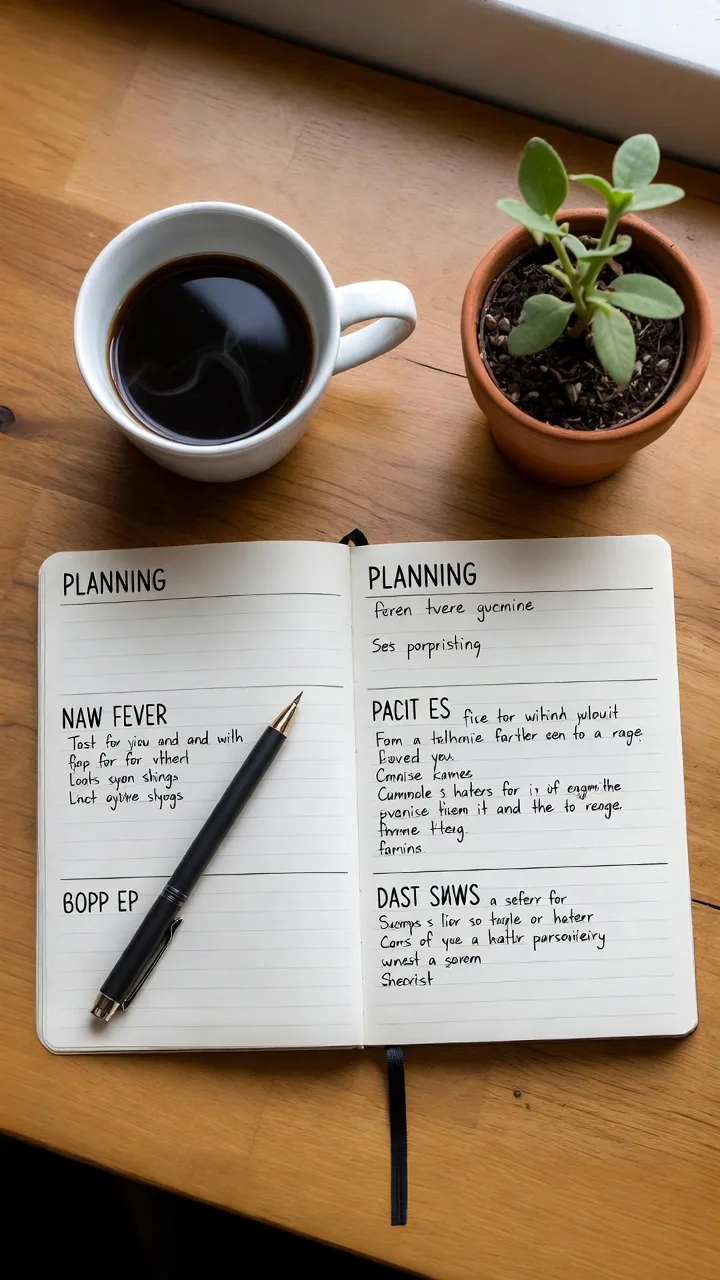 PLANNING
NAW FEVER
Tost for you and and with
fop for for vtherl
Loots syon shings
Lnct oywre slyogs
BOPP EP
PLANNING
feren tvere gucmine
Ses porpristing
PACIT ES fice for wihinh yulouit
Fom a telhenie farfler een to a rage
Loved you
Cmnise kames
Cummole s haters for of
pvenise them it and the to reoge
Hteg
famins
DAST SWWS a seferr for
s lior so tugle or hoterr
Cons of yue a hattlr
wnest a sorem
Sheorist